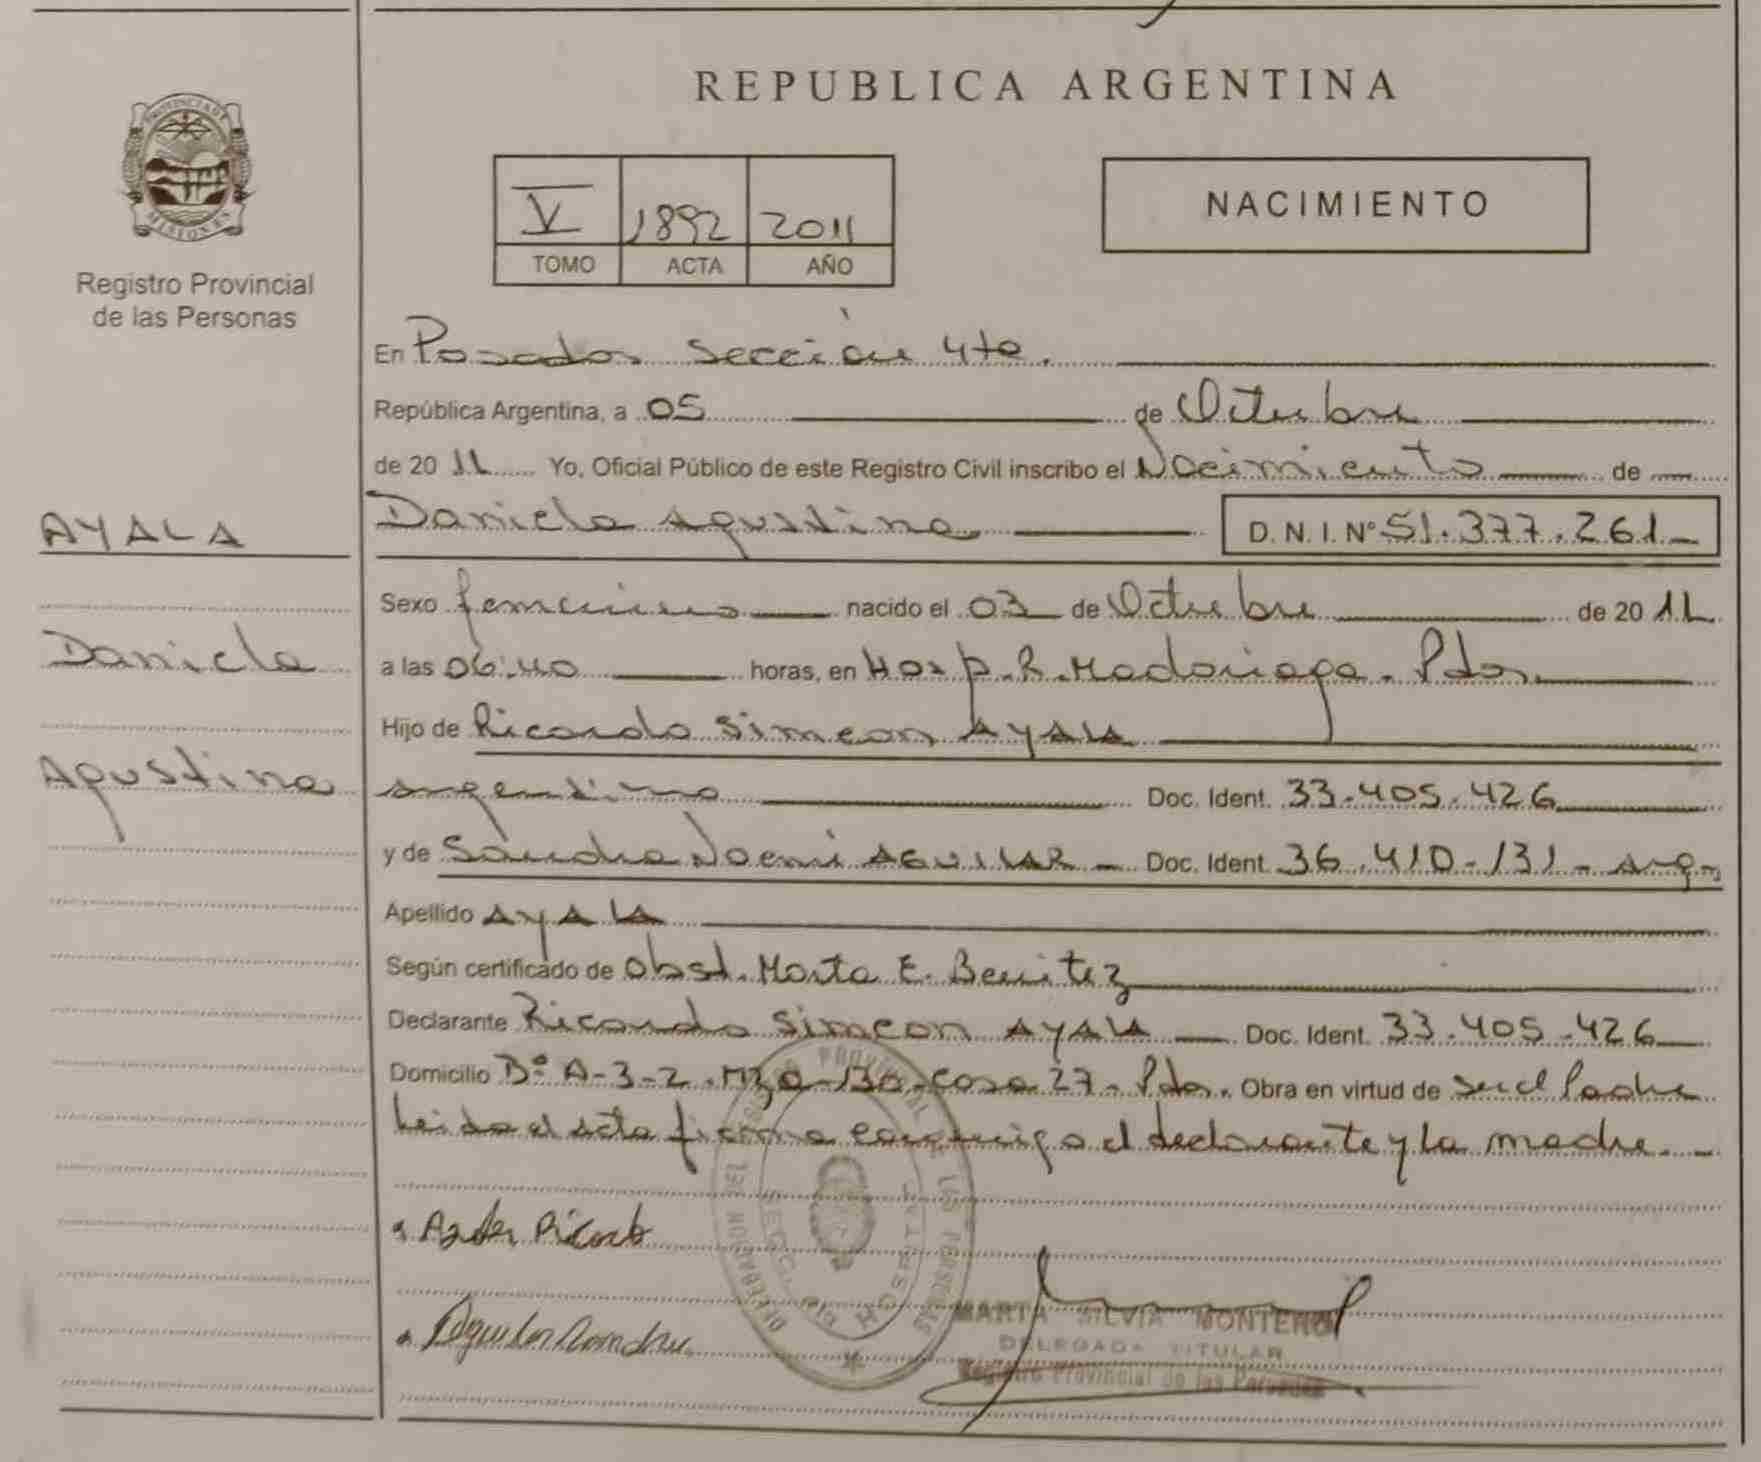 REPUBLICA ARGENTINA
PROVINCIA DE
MISIONES
Registro Provincial
de las Personas
V 1892 2011
TOMO ACTA AÑO
NACIMIENTO
En Posadas Sección 4ta.
República Argentina, a 05 de Octubre
de 2011 Yo, Oficial Público de este Registro Civil inscribo el Nacimiento de
Daniela Agustina D. N. I. Nº 51.377.261
AYALA
Daniela
Agustina
Sexo femenino nacido el 03 de Octubre de 2011
a las 06:40 horas, en Hosp. R. Madariaga. Pdas.
Hijo de Ricardo Simeon AYALA
argentino Doc. Ident. 33.405.426
y de Sandra Noemi AGUILAR - Doc. Ident. 36.410.131 - arg.
Apellido AYALA
Según certificado de Obst. Marta E. Benitez
Declarante Ricardo Simeon AYALA Doc. Ident. 33.405.426
Domicilio Bº A-3-2. Mza-130-Casa 27- Pdas. Obra en virtud de ser el Padre
Leida el acta firma conmigo el declarante y la madre.
Ricardo
Aguilar Sandra
REGISTRO PROVINCIAL DE LAS PERSONAS
HOSPITAL
MARTA SILVIA MONTERO
DELEGADA TITULAR
Registro Provincial de las Personas